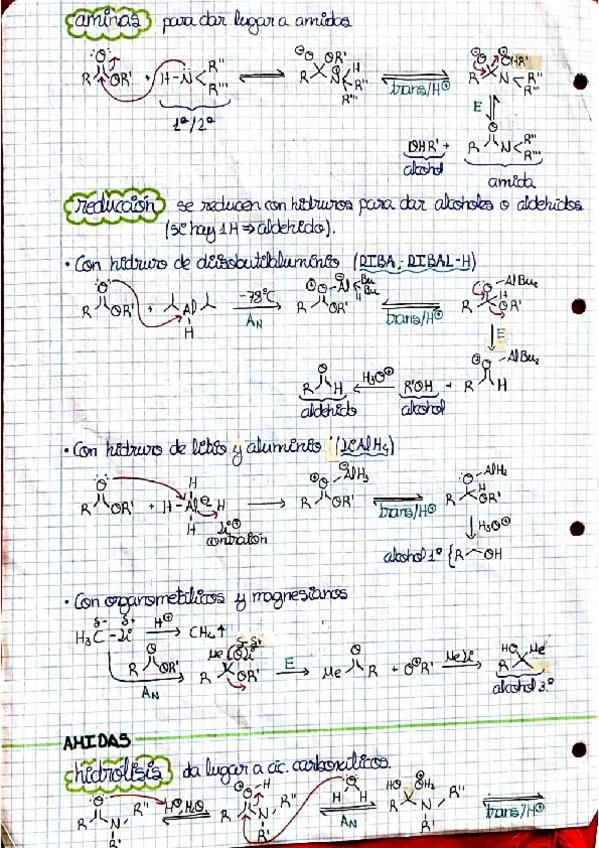 aminas para dar lugar a amidas
R OR' + H-N R'' R''' ⇌ R OR' H R'' R''' ⇌ trans/H⊕ R OHR' N R'' R'''
1ª/2ª
E
OHR' + R N R'' R'''
alcohol amida
reducción se reducen con hidruros para dar alcoholes o aldehidos
(si hay 1H ⇒ aldehido).
• Con hidruro de diisobutilaluminio (DIBA, DIBAL-H)
R OR' + Al H -78ºC AN R OR' Al Bu Bu H trans/H⊕ O-AlBu2 R H OR'
E
R H H3O⊕ R'OH + R H O-AlBu2
aldehido alcohol
• Con hidruro de litio y aluminio (LiAlH4)
R OR' + H-Al-H H H Li⊕ → AlH3 R OR' ⇌ trans/H⊕ O-AlH2 R H OR'
contraión
H3O⊕
alcohol 1º { R OH
• Con organometálicos y magnesianos
δ- δ+
H3C-Li H⊕ → CH4↑
R OR' AN Me OLi δ- δ+ R OR' E → Me O R + O⊖R' MeLi → HO Me R
alcohol 3º
AMIDAS
hidrólisis da lugar a ác. carboxílicos.
R O N R'' R' H⊕, H2O ⇌ R O H N R'' R' H O H ⇌ AN HO OH2 R N R'' R' ⇌ trans/H⊕